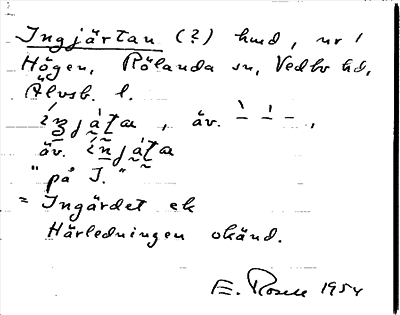 Ingjärtan (?) hmd, nr 1
Högen, Rölanda sn, Vedbo hd,
Älvsb. l.
íŋjàta, äv. ` ´ -,
äv. ínjàta
"på I."
= Ingärdet ek
Härledningen okänd.
E. Rosell 1954